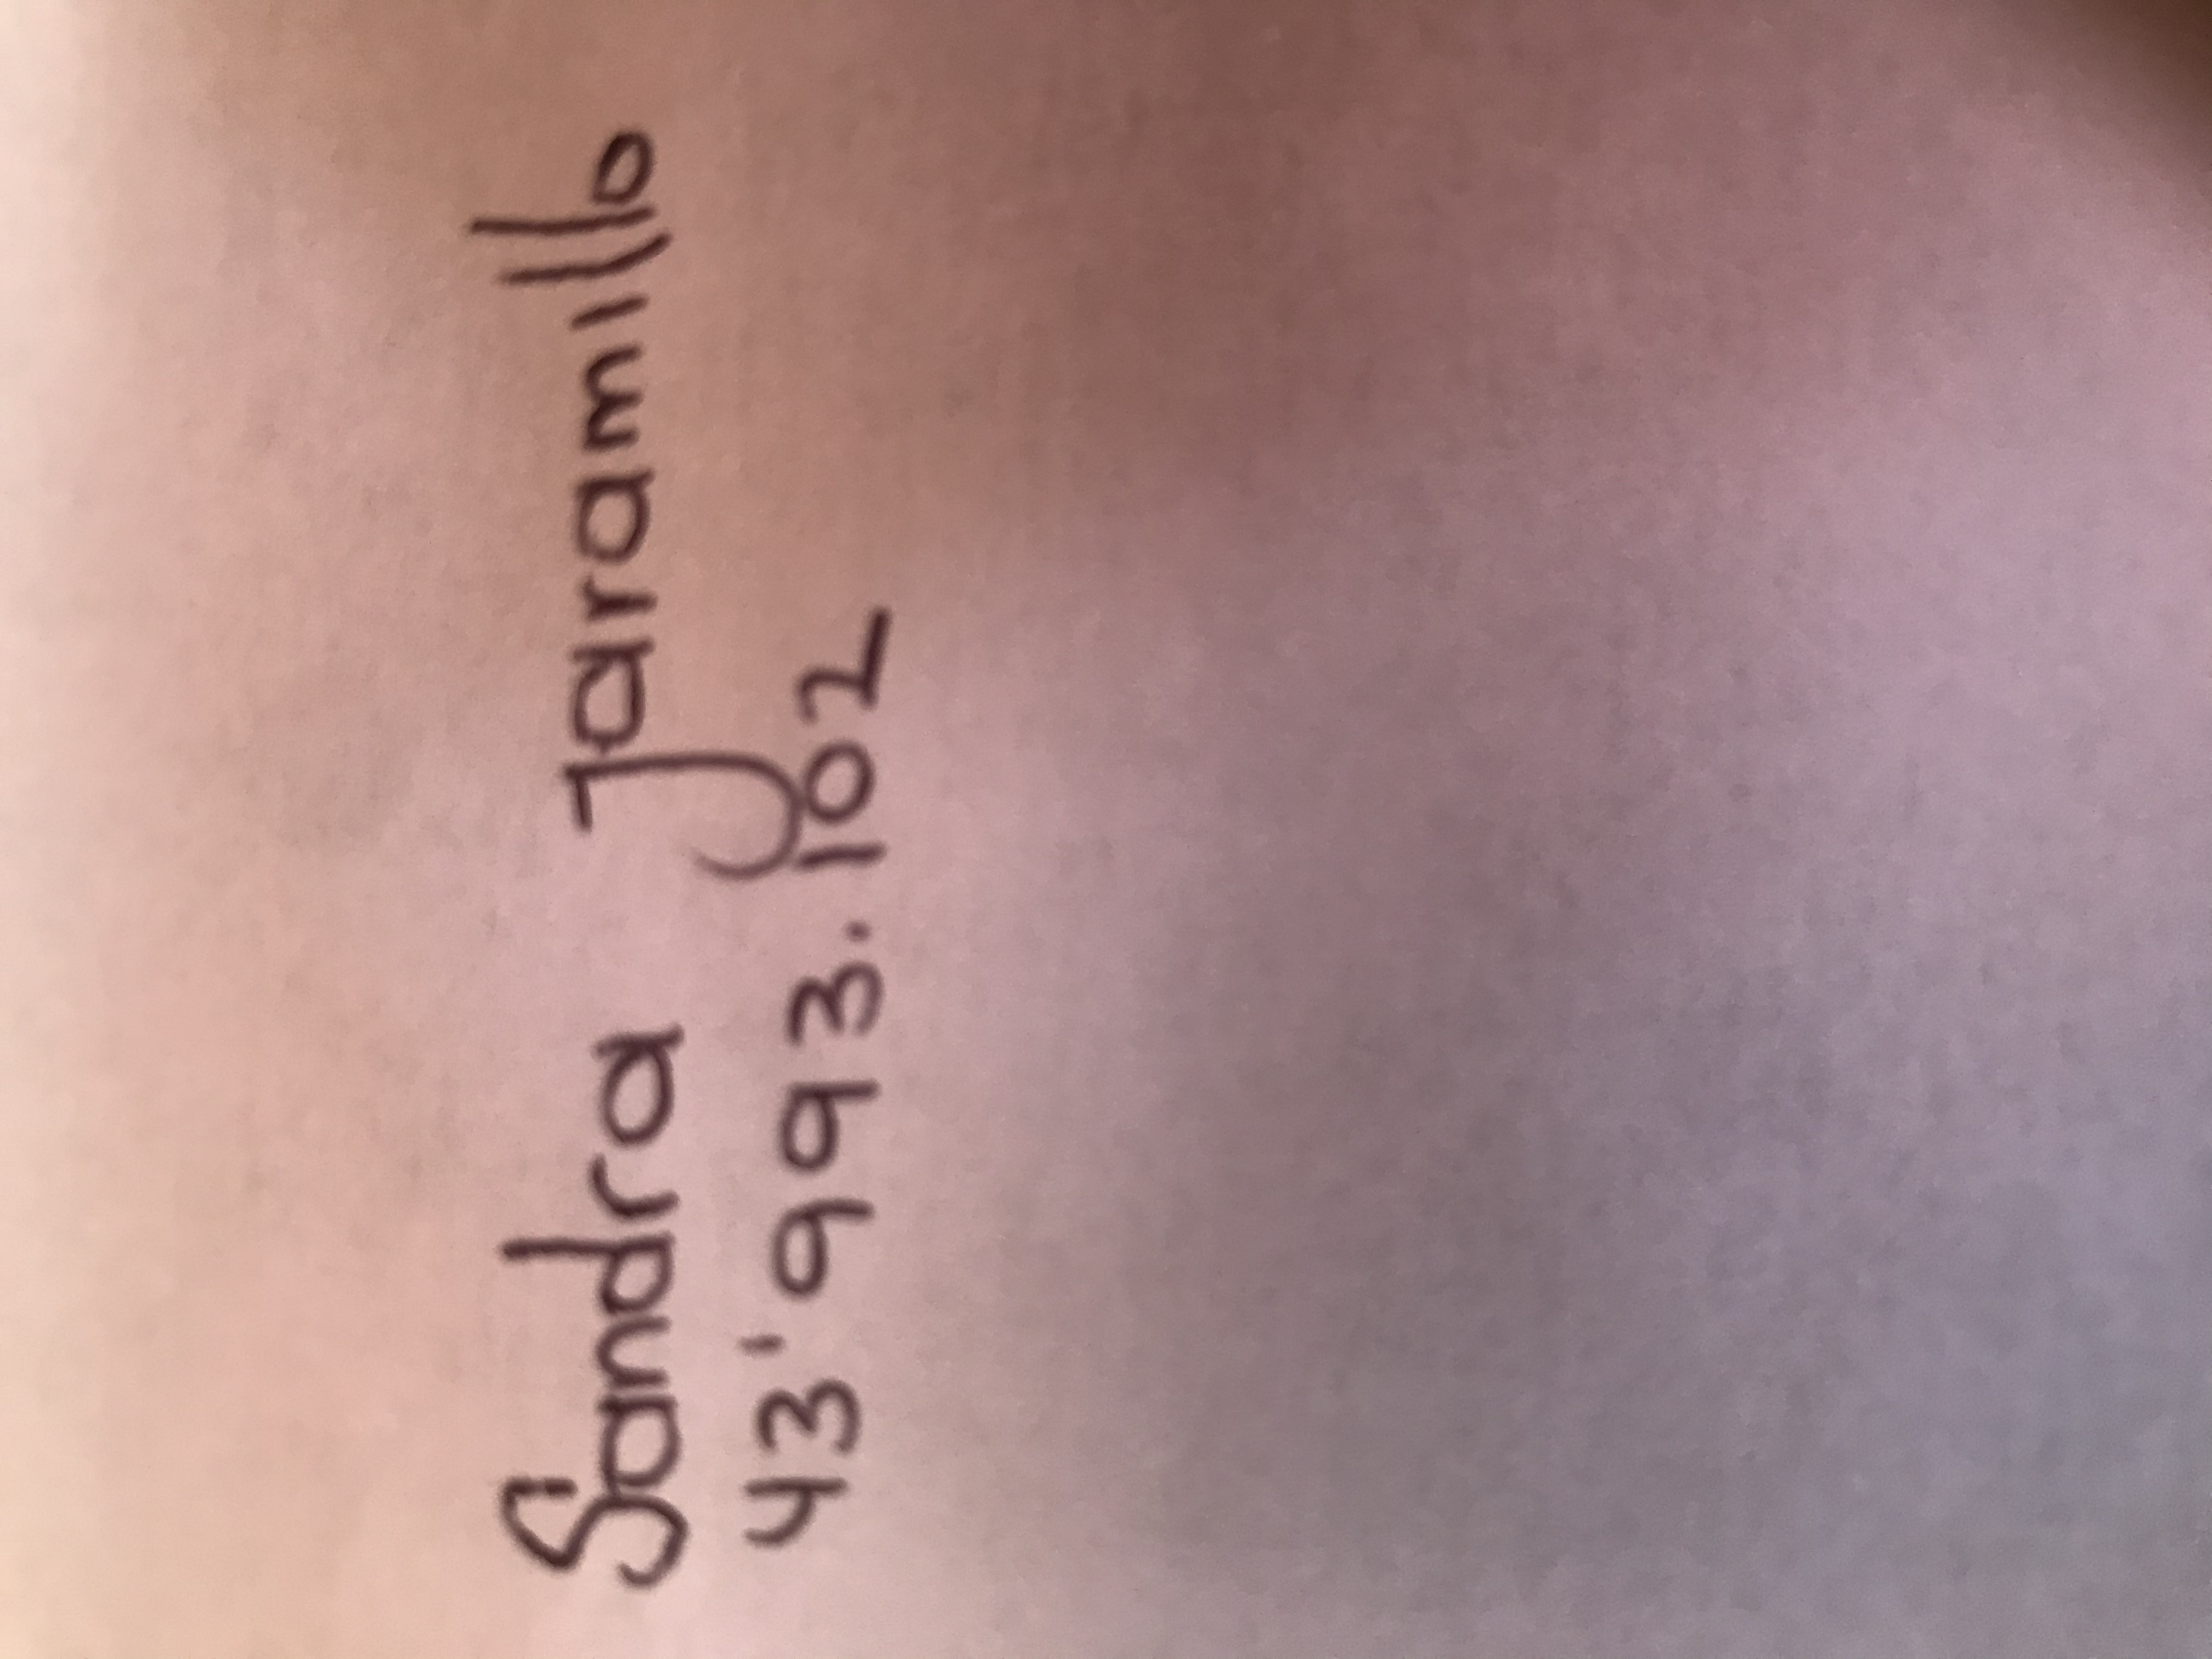 Sandra jaramillo
43'993.102